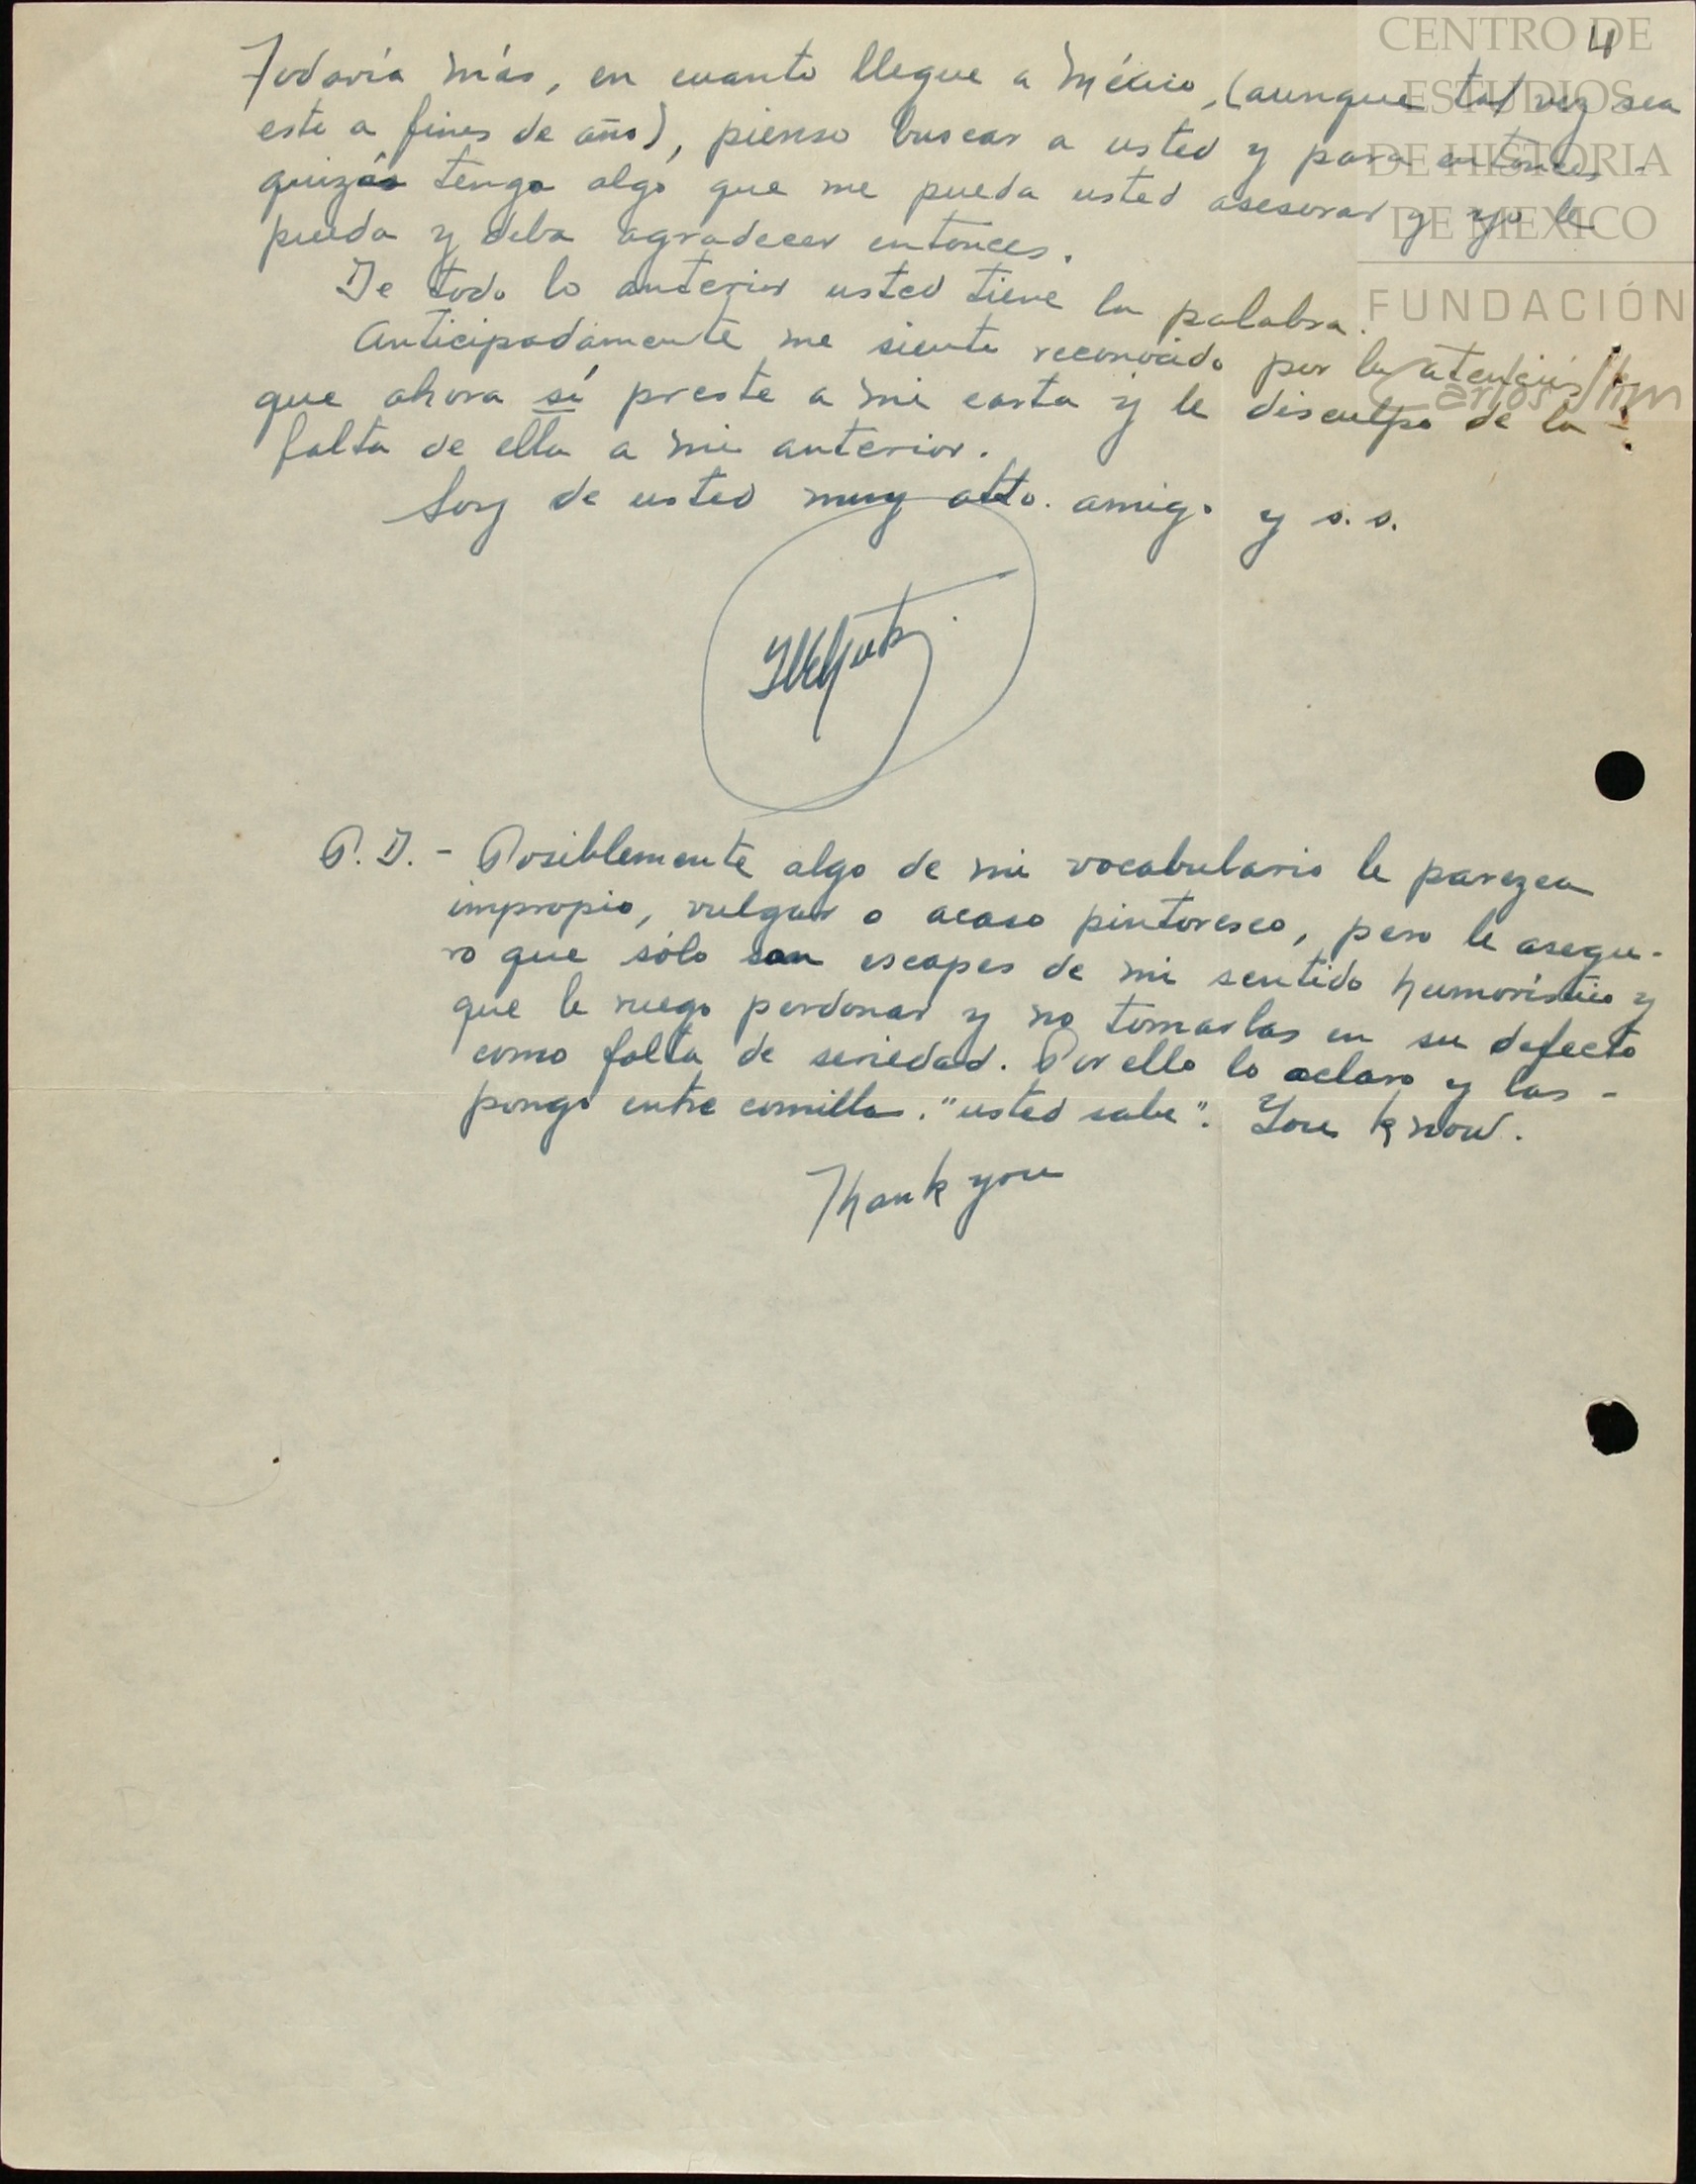 4
CENTRO DE
ESTUDIOS
DE HISTORIA
DE MEXICO
FUNDACIÓN
Carlos Slim
Todavía más, en cuanto llegue a México, (aunque tal vez sea
esto a fines de año), pienso buscar a usted y para entonces -
quizás tenga algo que me pueda usted asesorar y yo le
pueda y deba agradecer entonces.
De todo lo anterior usted tiene la palabra.
Anticipadamente me siento reconocido por la atención
que ahora sí preste a mi carta y le disculpo de la -
falta de ella a mi anterior.
Soy de usted muy atto. amigo y s.s.
P.D. - Posiblemente algo de mi vocabulario le parezca
impropio, vulgar o acaso pintoresco, pero le asegu-
ro que sólo son escapes de mi sentido humorístico y
que le ruego perdonar y no tomarlas en su defecto
como falta de seriedad. Por ello lo aclaro y las -
pongo entre comillas. "usted sabe". You know.
Thank you